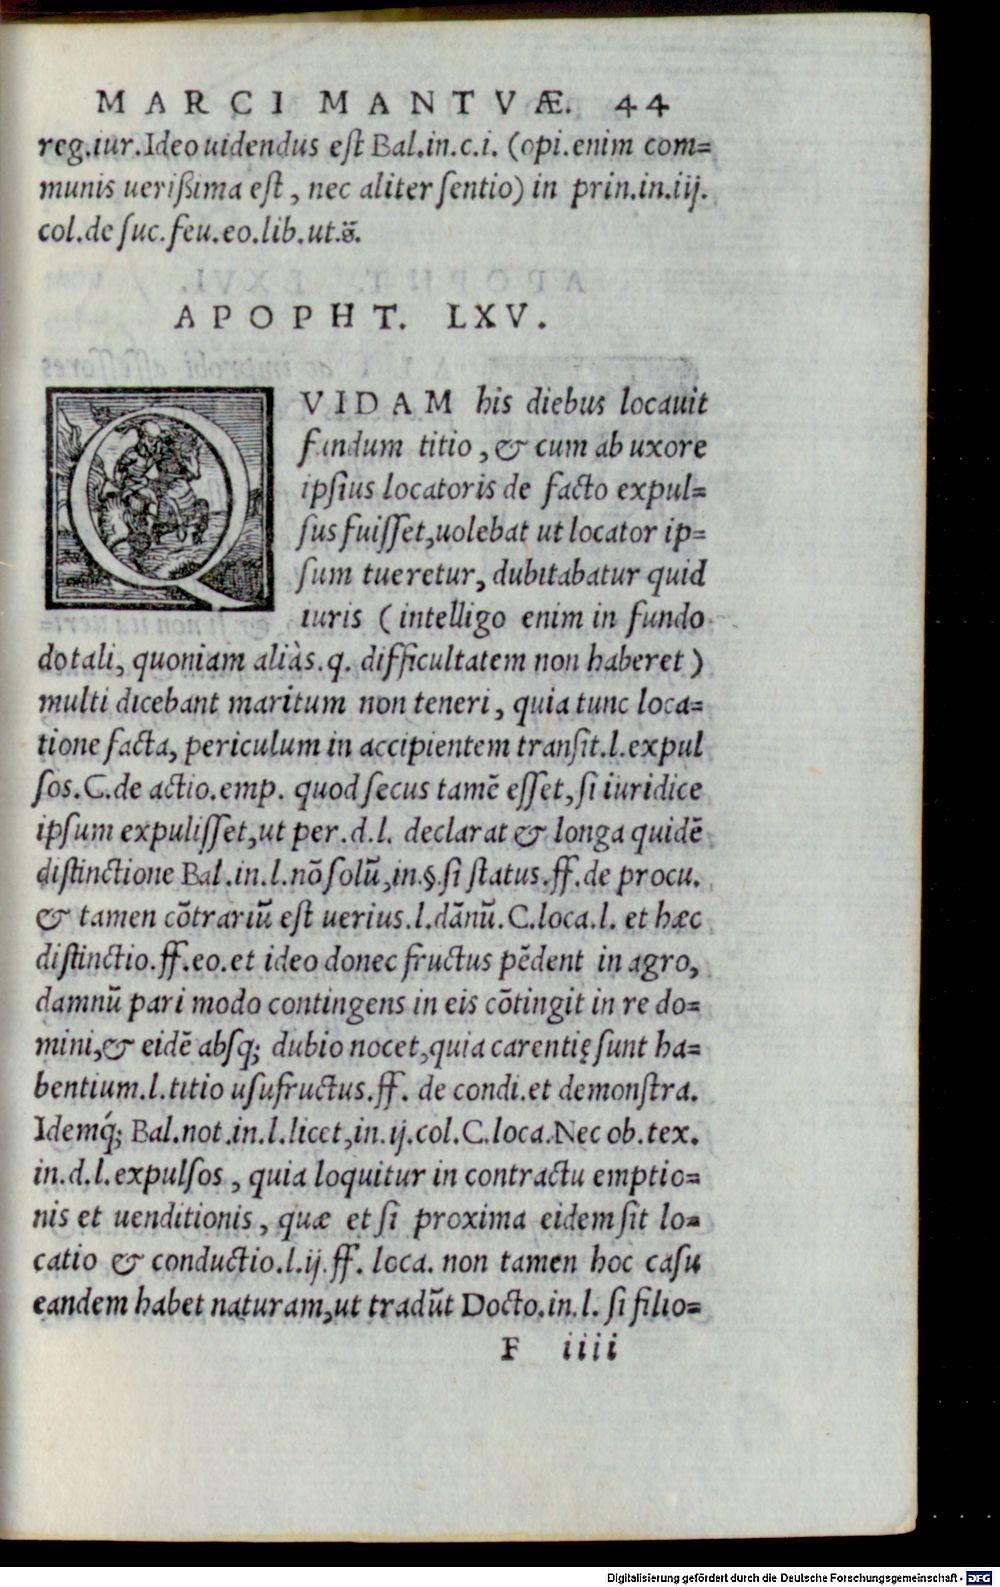 MARCI MANTVÆ. 44
reg.iur.Ideo uidendus eſt Bal.in.c.i. (opi.enim com=
munis ueriſſima eſt, nec aliter ſentio) in prin.in.iij.
col.de ſuc.feu.eo.lib.ut.s̄.
APOPHT. LXV.
QVIDAM his diebus locauit
fundum titio, & cum ab uxore
ipſius locatoris de facto expul=
ſus fuiſſet,uolebat ut locator ip=
ſum tueretur, dubitabatur quid
iuris (intelligo enim in fundo
dotali, quoniam aliàs.q. difficultatem non haberet)
multi dicebant maritum non teneri, quia tunc loca=
tione facta, periculum in accipientem tranſit.l.expul
ſos.C.de actio.emp. quod ſecus tamē eſſet,ſi iuridice
ipſum expuliſſet,ut per.d.l. declarat & longa quidē
diſtinctione Bal.in.l.nō ſolū,in.§.ſi ſtatus.ff.de procu.
& tamen cōtrariū eſt uerius.l.dānū.C.loca.l. et hæc
diſtinctio.ff.eo.et ideo donec fructus pēdent in agro,
damnū pari modo contingens in eis cōtingit in re do=
mini,& eidē abſq; dubio nocet,quia carentię ſunt ha=
bentium.l.titio uſufructus.ff. de condi.et demonſtra.
Idemq́; Bal.not.in.l.licet,in.ij.col.C.loca.Nec ob.tex.
in.d.l.expulſos, quia loquitur in contractu emptio=
nis et uenditionis, quæ et ſi proxima eidem ſit lo=
catio & conductio.l.ij.ff. loca. non tamen hoc caſu
eandem habet naturam,ut tradūt Docto.in.l. ſi filio=
F iiii
Digitalisierung gefördert durch die Deutsche Forschungsgemeinschaft - DFG